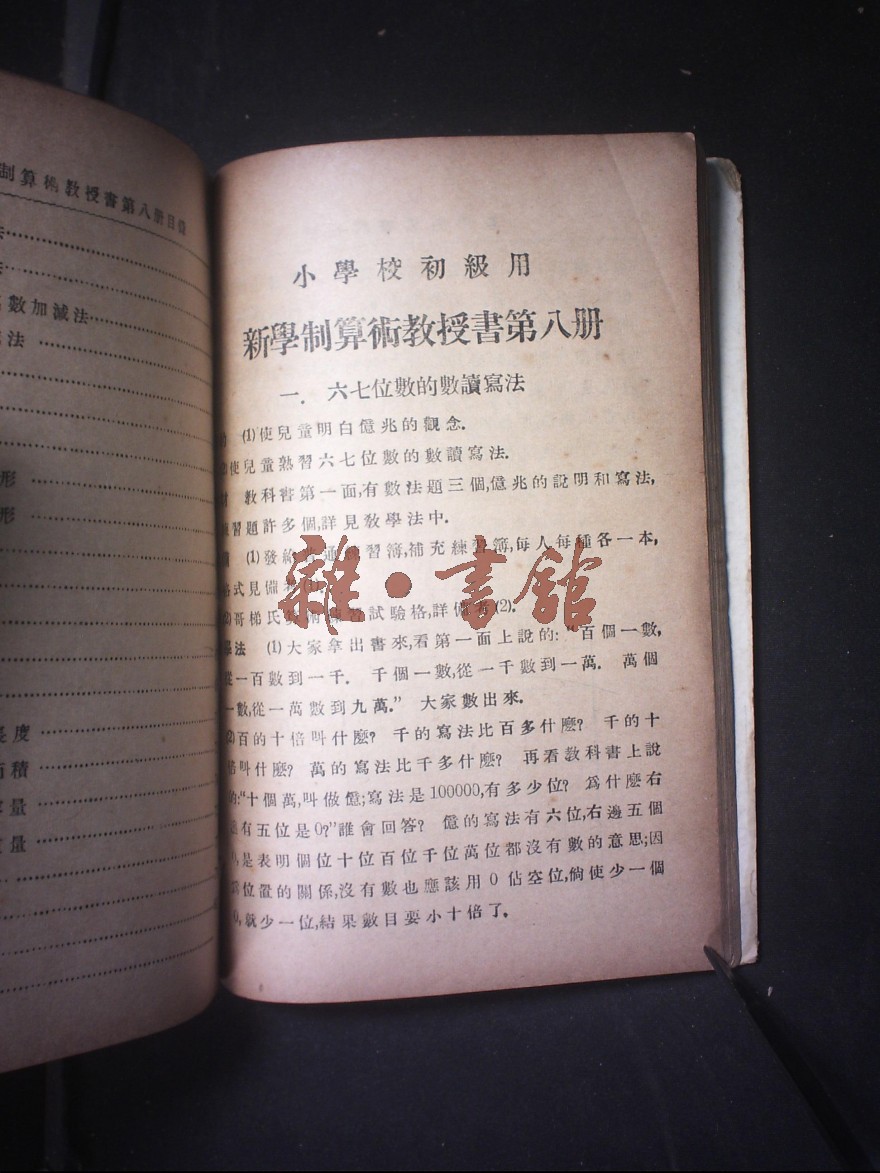 制算術教授書第八册目錄
數加減法
法
形
形
長度
面積
容量
重量
小學校初級用
新學制算術教授書第八册
一. 六七位數的數讀寫法
(1)使兒童明白億兆的觀念.
使兒童熟習六七位數的數讀寫法.
教科書第一面,有數法題三個,億兆的說明和寫法,
練習題許多個,詳見教學法中.
(1)發給 通練習簿,補充練習簿,每人每種各一本,
格式見備
(2)哥梯氏算術練習試驗格,詳備考(2).
學法 (1)大家拿出書來,看第一面上說的:“百個一數,
從一百數到一千. 千個一數,從一千數到一萬. 萬個
一數,從一萬數到九萬.” 大家數出來.
(2)百的十倍叫什麽? 千的寫法比百多什麽? 千的十
倍叫什麽? 萬的寫法比千多什麽? 再看教科書上說
的:“十個萬,叫做億;寫法是100000,有多少位? 爲什麽右
邊有五位是0?”誰會回答? 億的寫法有六位,右邊五個
0,是表明個位十位百位千位萬位都沒有數的意思;因
爲位置的關係,沒有數也應該用0佔空位,倘使少一個
0,就少一位,結果數目要小十倍了.
雜·書館